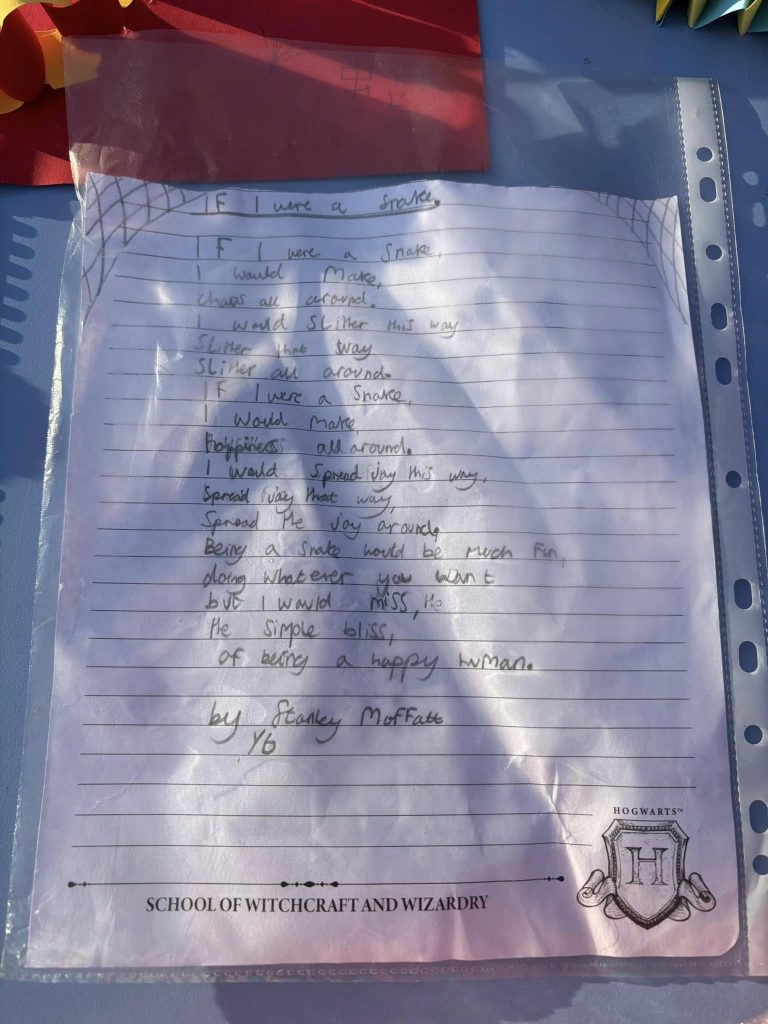 IF I were a Snake.
IF I were a Snake,
I would Make,
chaos all around.
I would Slither this way
Slither that way
Slither all around.
IF I were a Snake,
I would Make,
happiness all around.
I would Spread joy this way,
Spread joy that way,
Spread the joy around,
Being a Snake would be much Fun,
doing whatever you want
but I would miss, the
the simple bliss,
of being a happy human.
by Stanley Moffatt
Y6
HOGWARTS™
H
SCHOOL OF WITCHCRAFT AND WIZARDRY